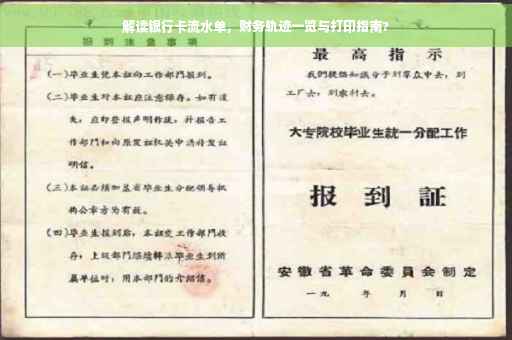 解读银行卡流水单，财务轨迹一览与打印指南？
报到注意事项
(一)毕业生凭本证向工作部门报到。
(二)毕业生对本证应注意保存。如有遗
失，应即登报声明作废，并报告工
作部门和向原发证机关申请补发证
明信。
(三)本证必须加盖省毕业生分配领导机
构公章方为有效。
(四)毕业生报到后，本证交工作部门收
存；上级部门继续转派毕业生到所
属单位时，用本部门的介绍信。
最高指示
我们提倡知识分子到群众中去，到
工厂去，到农村去。
大专院校毕业生统一分配工作
报到証
安徽省革命委員会制定
一九 年 月 日